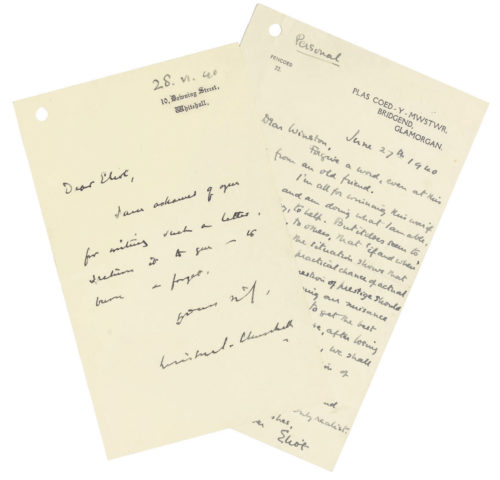 28. vi. 40
10, Downing Street,
Whitehall.
Dear Eliot,
I am ashamed of you
for writing such a letter.
I return it to you — to
burn & forget.
yours
Winston S. Churchill
Personal
PENCOED
22.
PLAS COED-Y-MWSTWR.
BRIDGEND,
GLAMORGAN.
June 27th 1940
Dear Winston,
Forgive a word, even at this
from an old friend.
I'm all for winning this war if
and am doing what I am able.
to help. But it does seem to
to others, that 'if and when'
the situation shows that
practical chance of actual
question of prestige should
our nuisance
to get the best
after losing
, we shall
of
nd
only realist.
shes,
Eliot